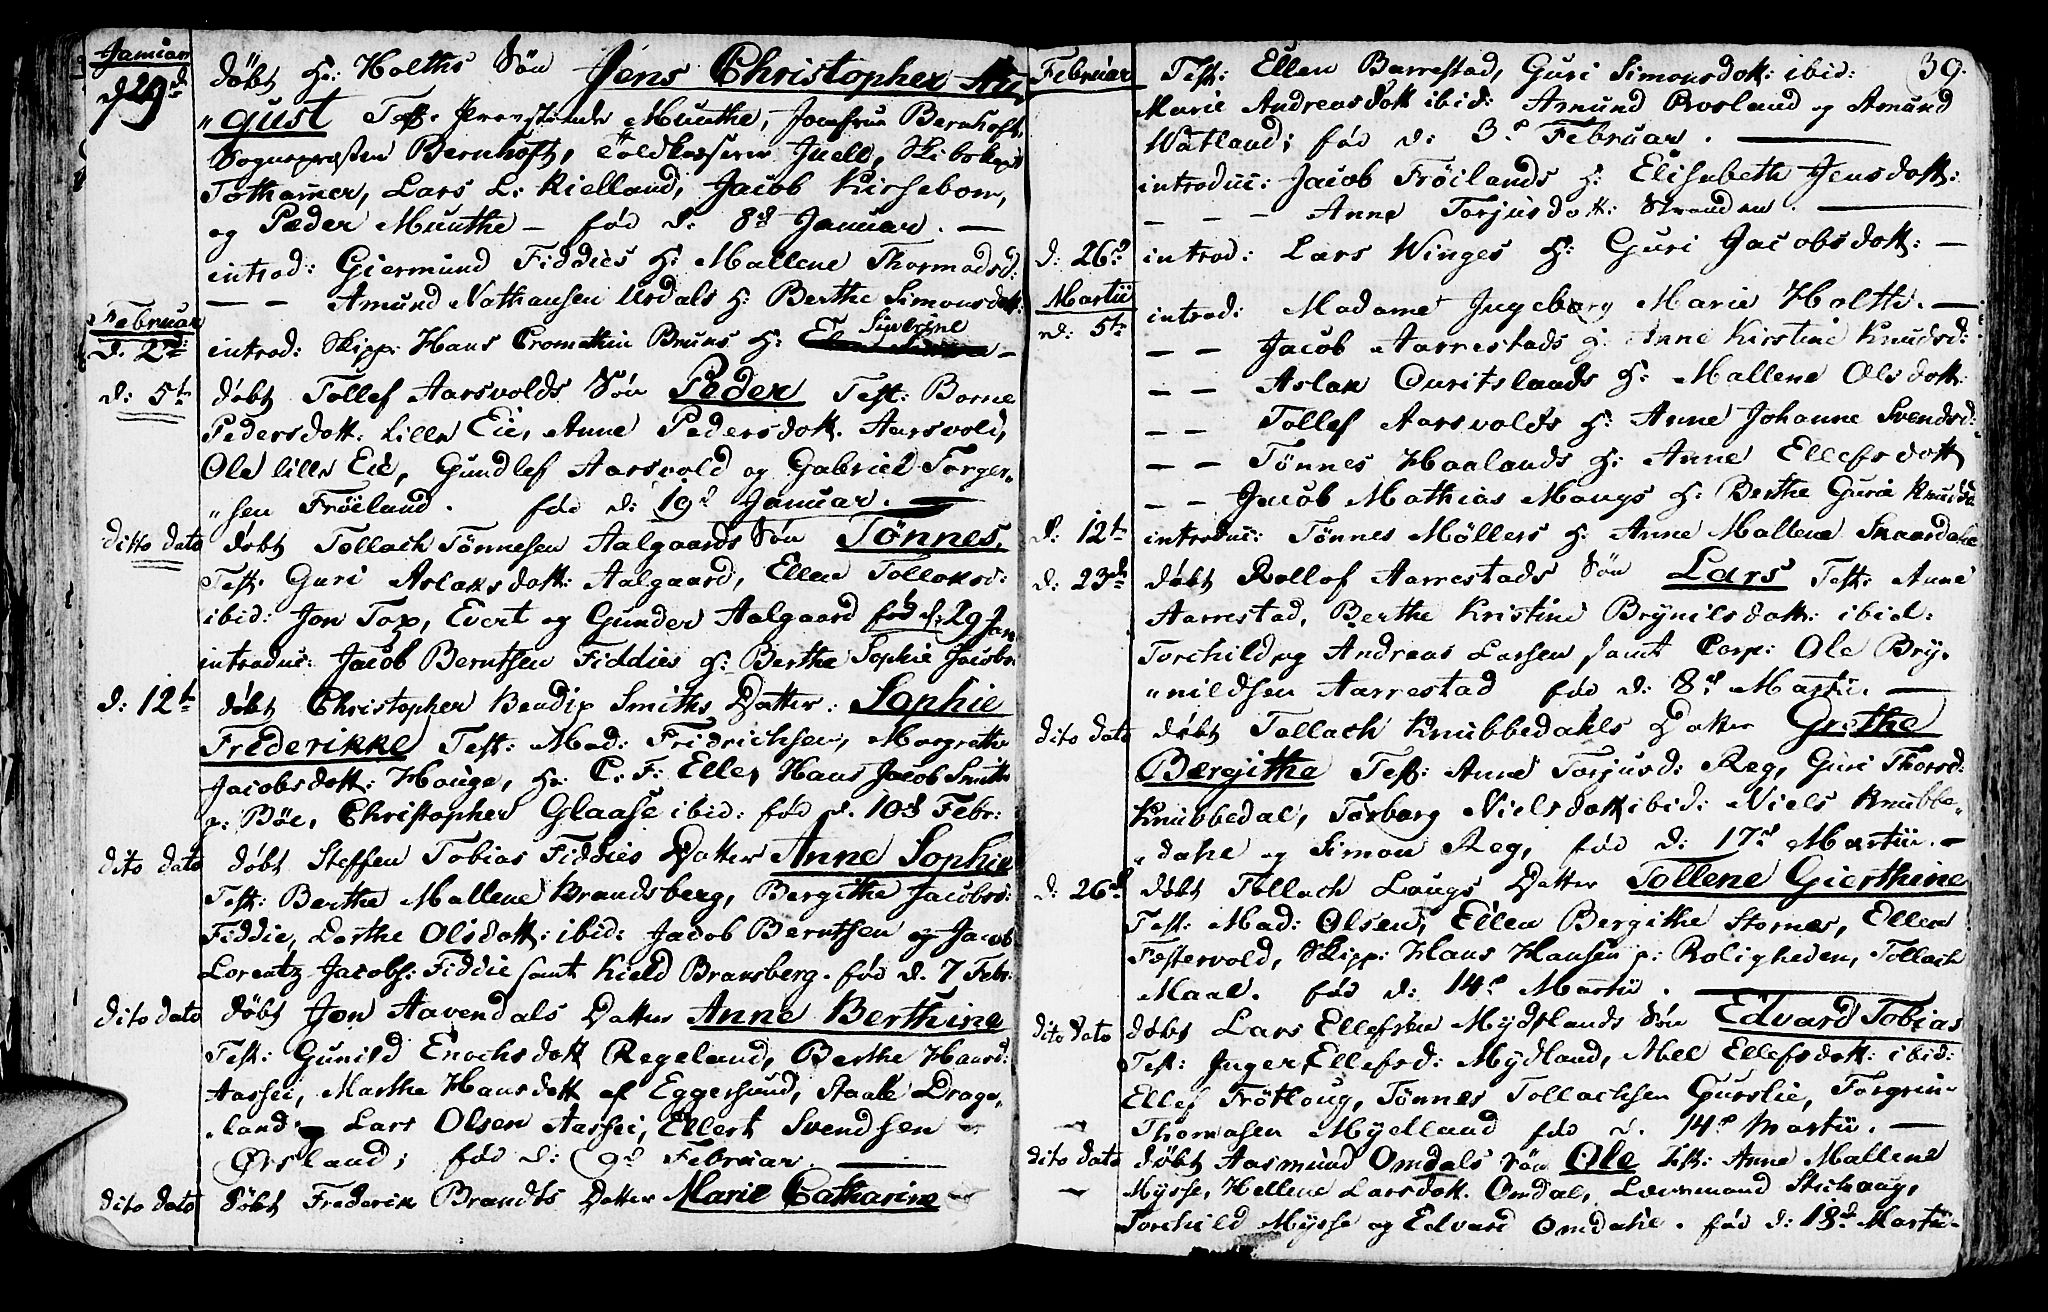 Januar
d 29d döbt Hr: Holths Sön Jens Christopher Au„
„gust Test. Muuthe, Jomfrue Bernhoft,
Sognepræsten Bernhoft, Toldkasserer Juell, Skibskapt
Tothamer, Lars L: Kielland, Jacob Kirsebom,
og Peder Muuthe – fød d: 8d Januar. —
introd: Giermund Fiddies H: Mallene Thormodsd:
— — Amund Nathansen Usdals H: Berthe Simonsdott:
Februar
d: 2d: introd: Skipp: Hans Cromethin Bruns H: Siverine —
d: 5t döbt Tollef Aarsvolds Sön Peder Test: Borne
Pedersdott: Lille Eie, Anne Pedersdott. Aarsvold,
Ole lille Eie, Gundlef Aarsvold og Gabriel Torger„
„sen Fröiland. fød d: 19d Januar. —
ditto dato döbt Tollach Tönnesen Aalgaards Sön Tönnes,
Test. Guri Aslaksdott: Aalgaard, Ellen Tolloksd:
ibid: Jon Tox, Evert og Gunder Aalgaard fød d: 29 Jan
introduc: Jacob Berntsen Fiddies H: Berthe Sophie Jacobs:
d: 12t döbt Christopher Bendix Smiths Datter: Sophie
Frederikke Test: Mad: Fridrichsen, Margrethe
Jacobsdott: Hauge, Hr: C. F. Elle, Hans Jacob Smith
p: Böe, Christopher Glaase ibid: fød d. 10d Febr:
dito dato döbt Steffen Tobias Fiddies Datter Anne Sophie
Test: Berthe Mallene Brandsberg, Bergithe Jacobs:
Fiddie, Dorthe Olsdott: ibid: Jacob Berntsen og Jacob
Lorentz Jacobs: Fiddie samt Kield Bransberg. fød d. 7 Febr:
dito dato döbt Jon Aavendals Datter Anne Berthine
Test: Gunild Enochsdott Regeland, Berthe Hansd:
Aassei, Marthe Hansdott af Eggersund, Staale Drage„
„land og Lars Olsen Aassei, Ellert Svendsen
Ørsland; fød d: 9d Februar —
dito dato döbt Frederik Brandts Datter Marie Catharine
39.
Februar Test: Ellen Barrestad, Guri Simonsdott: ibid:
Marie Andreasdott ibid: Amund Prosland og Amund
Watland; fød d: 3d Februar. —
introduc: Jacob Fröilands H: Elisabeth Jensdott:
— — — Anne Torjusdott: Stranden. —
d: 26d introd: Lars Winges H: Guri Jacobsdott: —
Martii
d: 5te introd: Madame Ingeborg Marie Holth. —
— — Jacob Aarrestads H: Anne Kirstine Knudsd:
— — Aslak Ouritslands H: Mallene Olsdott:
— — Tollef Aarsvolds H: Anne Johanne Svendsd:
— — Tönnes Haalands H: Anne Ellefsdott
— — Jacob Mathias Maugs H: Berthe Guria Knudsd
d: 12t introduc: Tönnes Möllers H: Anne Mallene Skaardahe
d: 23d döbt Rollof Aarrestads Sön Lars Test: Anne
Aarrestad, Berthe Kristine Brynilsdott: ibid:
Torchild og Andreas Larsen samt Corp: Ole Bry„
„nildsen Aarrestad fød d: 8d Martii. —
dito dato döbt Tollach Knubbedahls Datter Grethe
Bergithe Test: Anne Torjusd: Reg, Guri Thorsd:
Knubbedal, Torborg Nielsdott ibid: Niels Knubbe„
„dahl og Simon Reg, fød d: 17d Martii. —
d: 26d döbt Tollach Laugs Datter Tollene Gierthine
Test: Mad: Olsen, Ellen Bergithe Stornes, Ellen
Festervold, Skipp: Hans Hansen p: Roligheden, Tollach
Maal. fød d: 14d Martii. —
dito dato döbt Lars Ellefsen Mydlands Sön Edvard Tobias
Test: Inger Ellefsd: Mydland, Mel Ellefsdott: ibid:
Ellef Frötloug, Tönnes Tollachsen Gurslie, Torgrim
Thomasen Mydland fød d. 14d Martii. —
dito dato döbt Aasmund Omdals Sön Ole Test: Anne Mallene
Mysse, Hellene Larsdott. Omdal, Lensmand Stuhaug,
Torchild Mysse og Edvard Omdahl. fød d: 18d Martii.